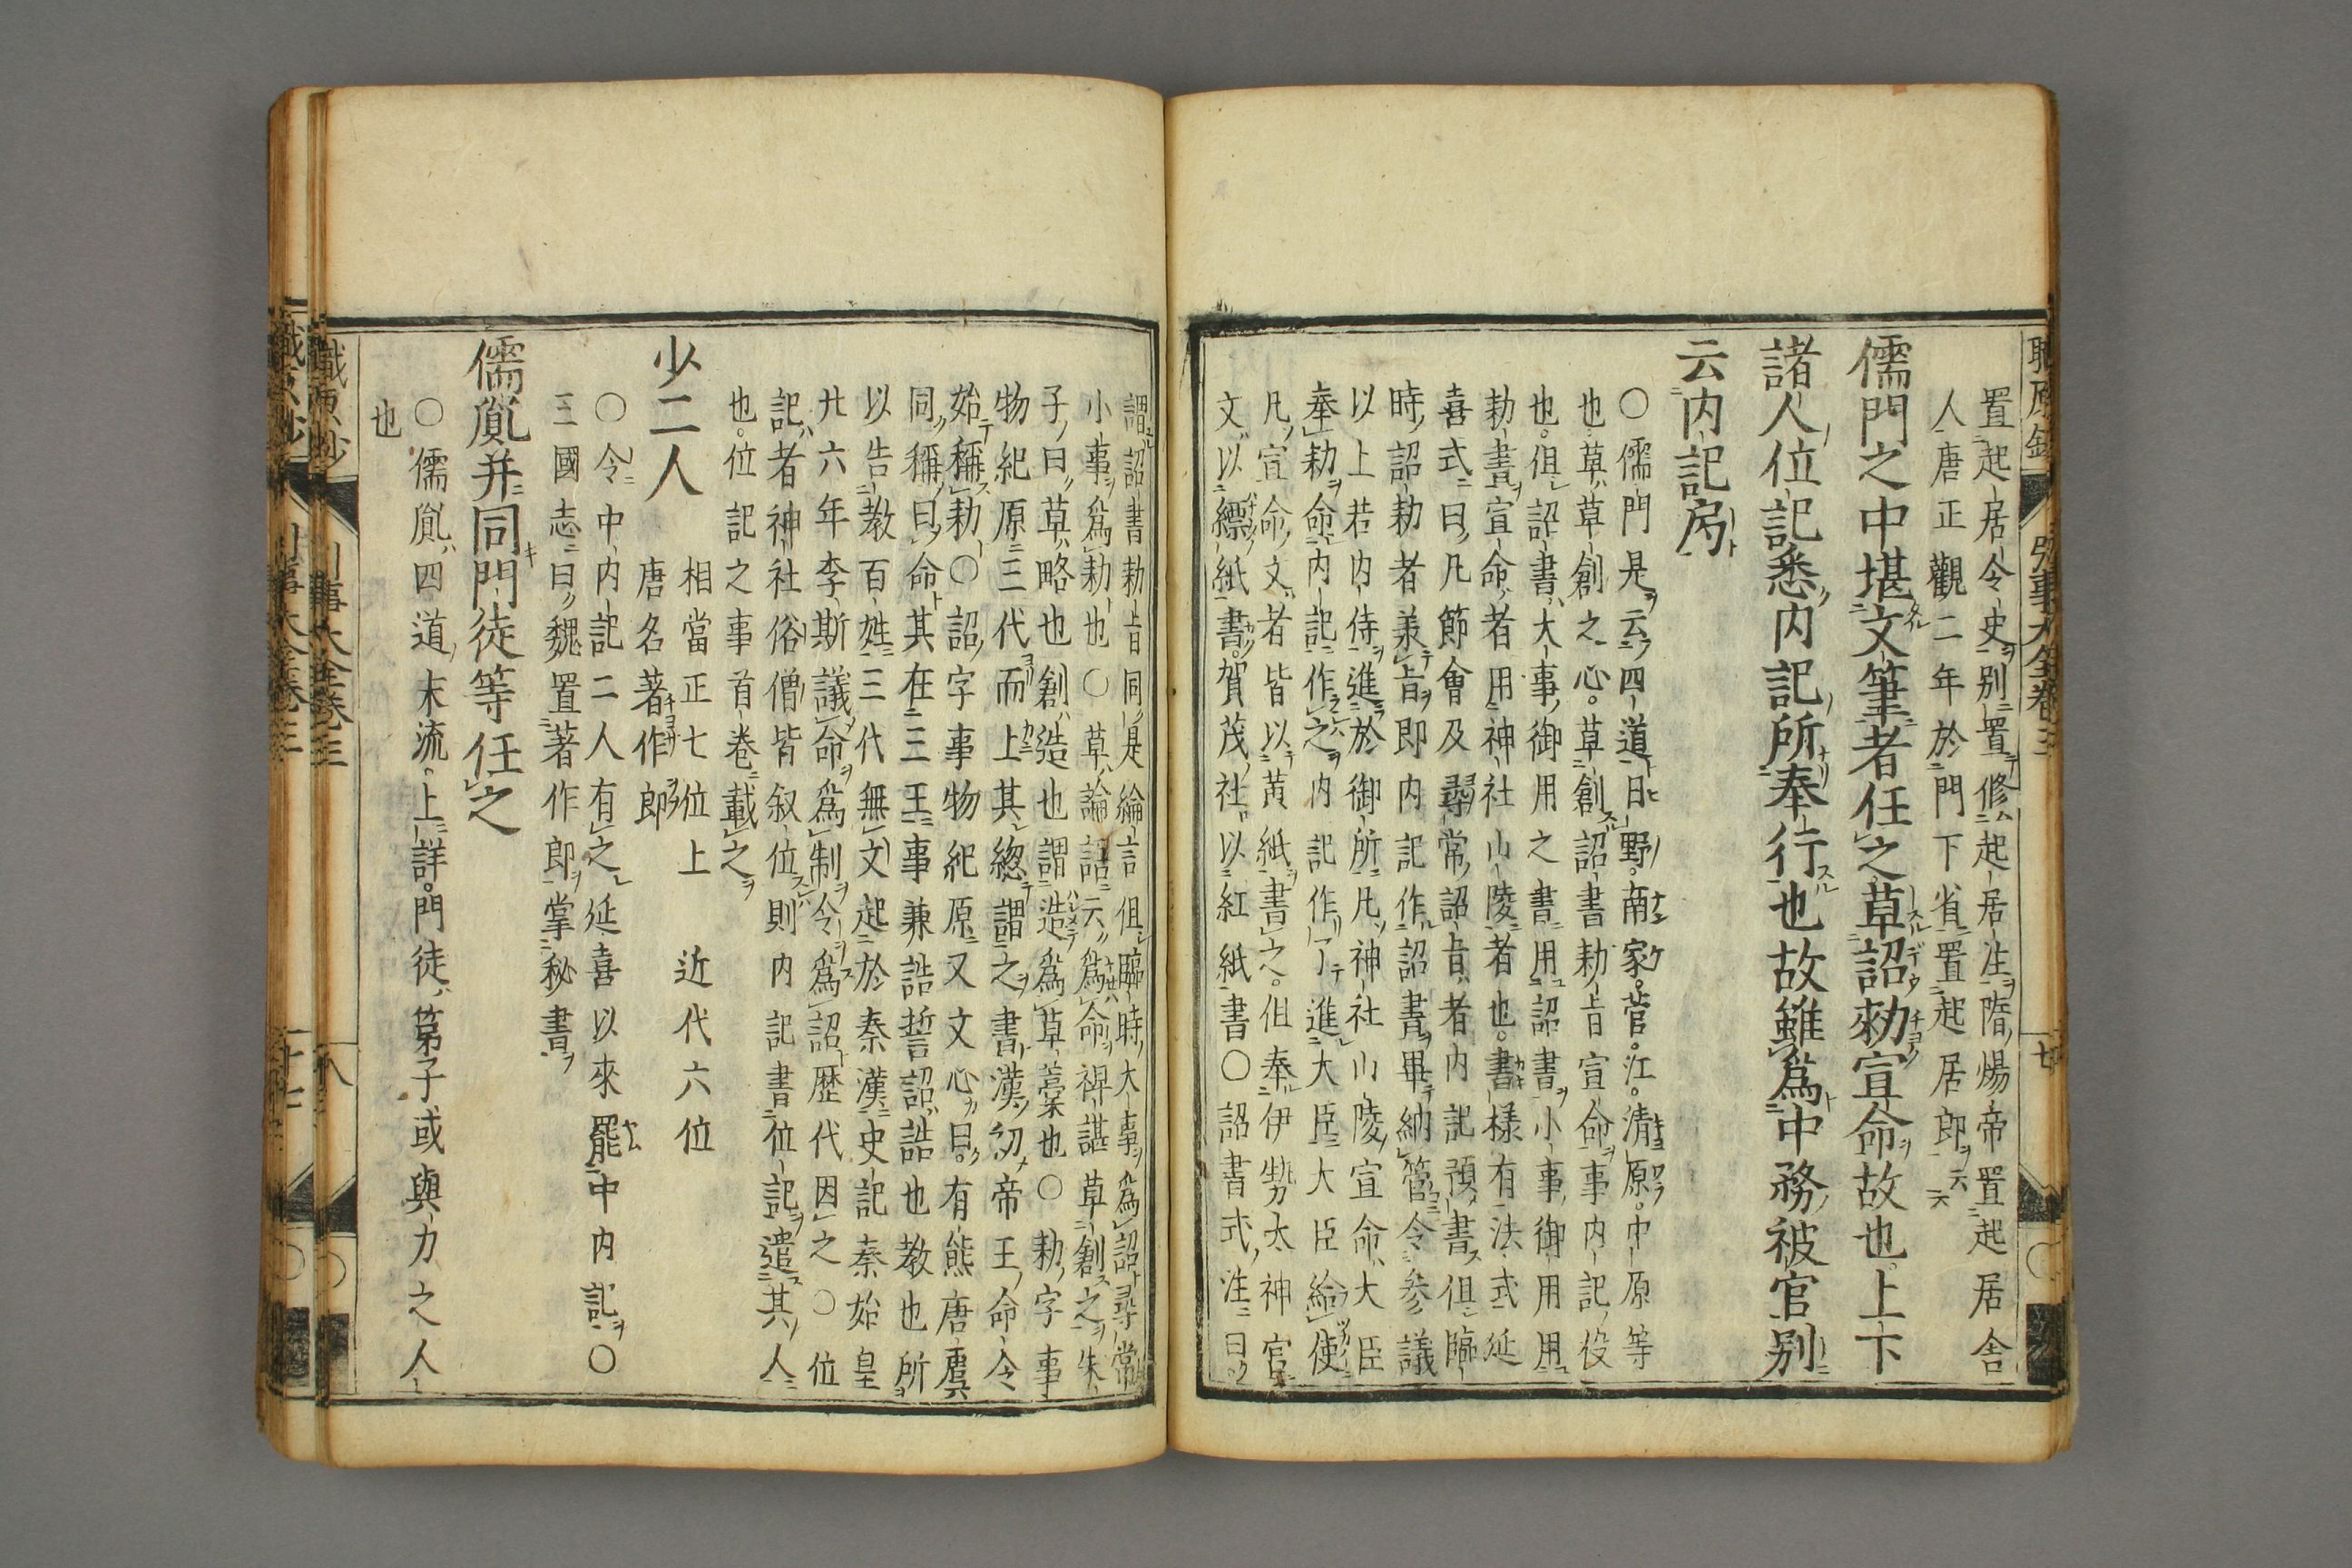 置起居令史別置修起居注隋煬帝置起居舎
人唐正觀二年於門下省置起居郎云云
儒門之中堪文筆者任之草詔勅宣命故也上下
諸人位記悉内記所奉行也故雖爲中務被官別
云内記局
〇儒門是云四道日野。南家。菅。江。清原。中原等
也草草創之心。草創詔書勅旨宣命事内記役
也。但詔書大事御用之書用詔書小事御用用
勅書宣命者用神社山陵者也。書様有法式延
喜式曰凡節會及尋常詔旨者内記預書但臨
時詔勅者美旨即内記作詔書畢納管令参議
以上若内侍進於御所凡神社山陵宣命大臣
奉勅命内記作之内記作了進大臣大臣給使
凡宣命文者皆以黄紙書之。但奉伊勢太神官
文以縹紙書。賀茂社以紅紙書〇詔書式注曰
謂詔書勅旨同是綸言但臨時大事爲詔尋常
小事爲勅也〇草論語云爲命裨諶草創之朱
子曰草略也創造也謂造爲草藁也〇勅字事
物紀原三代而上其總謂之書漢初帝王命令
始稱勅〇詔字事物紀原又文心曰。有熊唐虞
同稱曰命其在三王事兼誥誓詔誥也教也所
以告教百姓三代無文起於秦漢史記秦始皇
廿六年李斯議命爲制令爲詔歴代因之〇位
記者神社俗僧皆叙位則内記書位記遣其人
也。位記之事首巻載之
少二人
相當正七位上　近代六位
唐名著作郎
〇令中内記二人有之延喜以來罷中内記〇
三國志曰魏置著作郎掌秘書
儒胤并同門徒等任之
〇儒胤四道末流上詳。門徒第子或與力之人
也